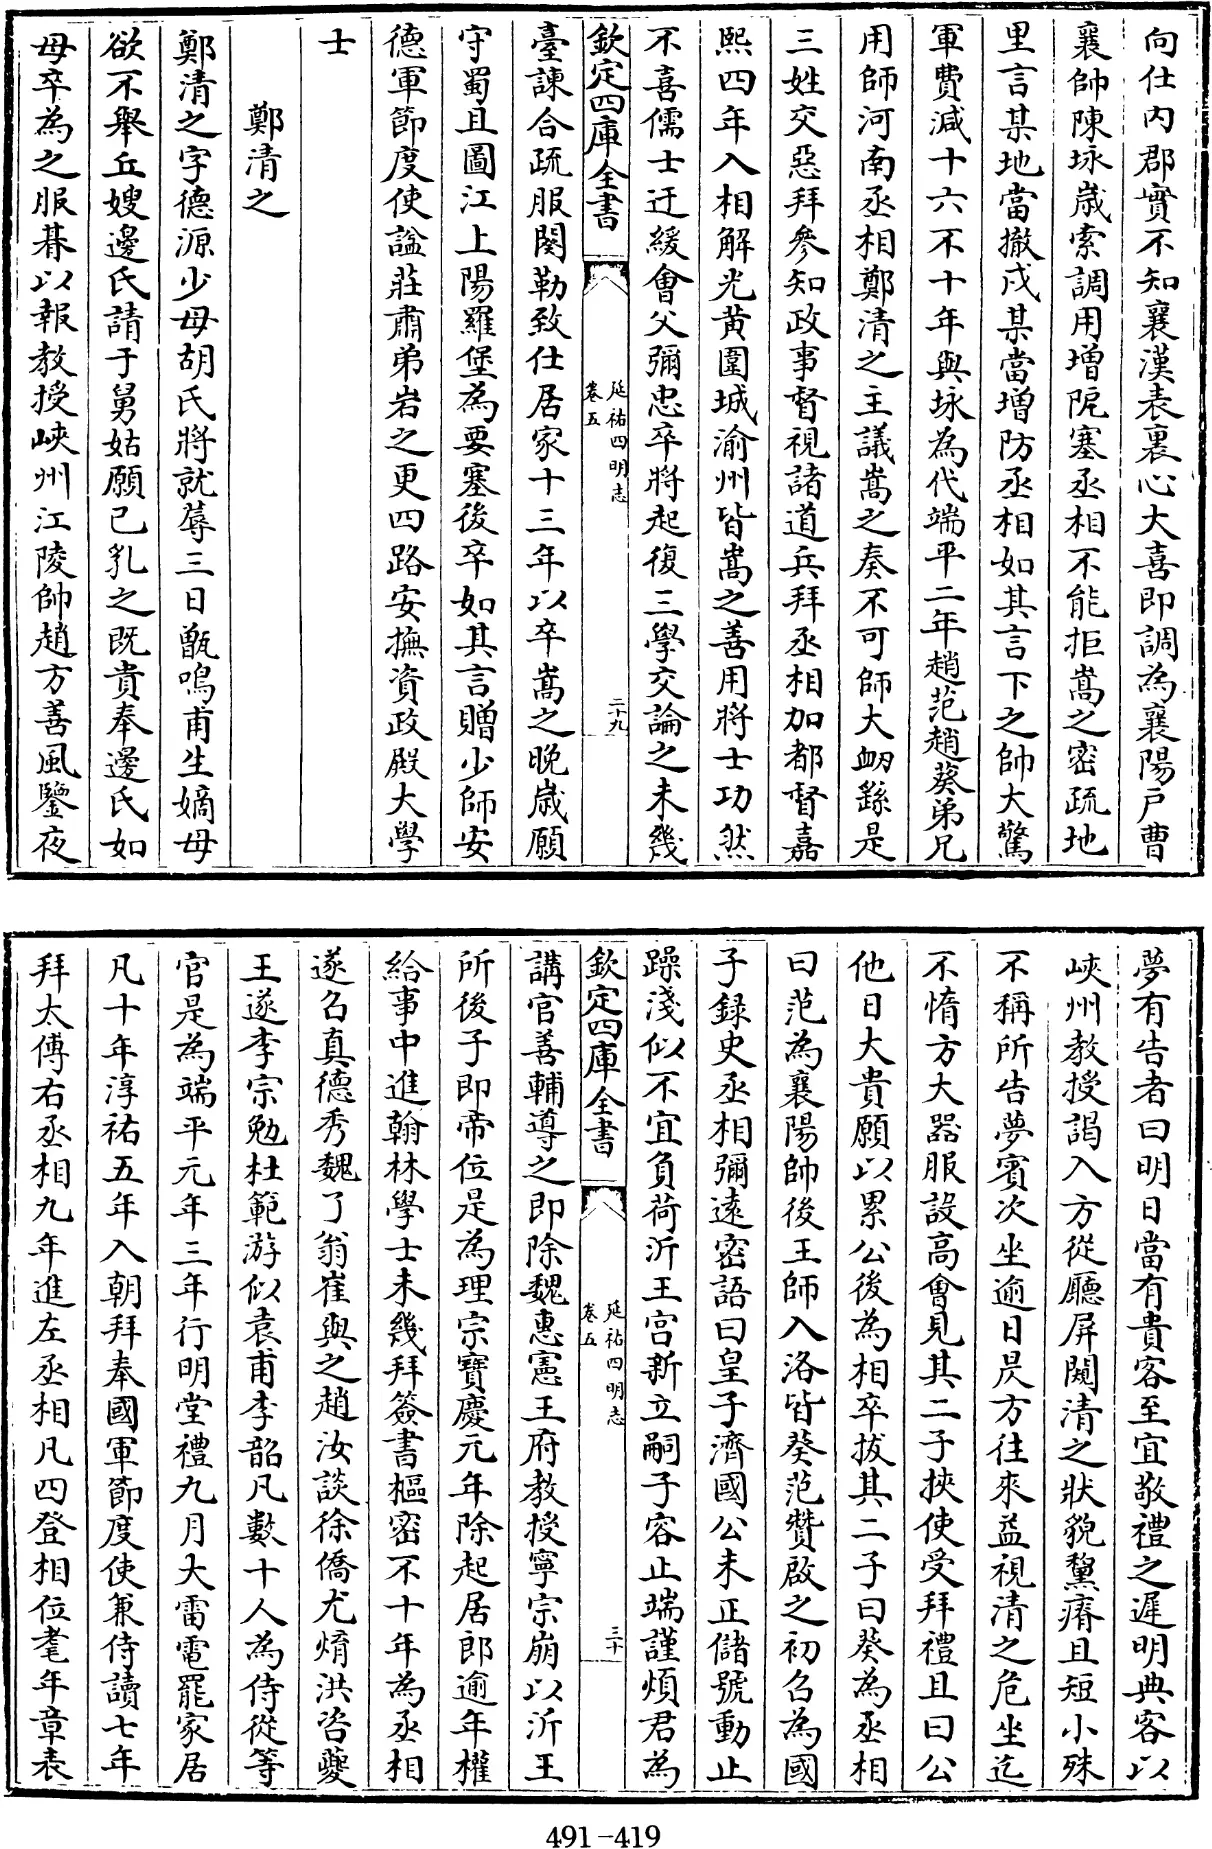 向仕内郡實不知襄漢表裏心大喜即調為襄陽戸曹
襄帥陳㘽嵗索調用增阨塞丞相不能拒嵩之密疏地
里言某地當撤戍某當增防丞相如其言下之帥大驚
軍費減十六不十年與㘽為代端平二年趙范趙葵弟兄
用師河南丞相鄭清之主議嵩之奏不可師大衂繇是
三姓交惡拜參知政事督視諸道兵拜丞相加都督嘉
熙四年入相解光黄圍城渝州皆嵩之善用將士功然
不喜儒士迂緩會父彌忠卒將起復三學交論之未幾
欽定四庫全書
延祐四明志
卷五
二十九
臺諫合疏服闋勒致仕居家十三年以卒嵩之晚嵗願
守蜀且圖江上陽羅堡為要塞後卒如其言贈少師安
德軍節度使諡莊肅弟岩之更四路安撫資政殿大學
士
鄭清之
鄭清之字德源少母胡氏將就蓐三日甑鳴甫生嫡母
欲不舉丘嫂邊氏請于舅姑願己乳之既貴奉邊氏如
母卒為之服朞以報教授峽州江陵帥趙方善風鑒夜
夢有告者曰明日當有貴客至宜敬禮之遲明典客以
峽州教授謁入方從廳屏闚清之狀貌黧瘠且短小殊
不稱所告夢賓次坐逾日昃方往來益視清之危坐迄
不惰方大器服設高會見其二子挾使受拜禮且曰公
他日大貴願以累公後為相卒拔其二子曰葵為丞相
曰范為襄陽帥後王師入洛皆葵范贊啟之初召為國
子錄史丞相彌遠密語曰皇子濟國公未正儲號動止
躁淺似不宜負荷沂王宫新立嗣子容止端謹煩君為
欽定四庫全書
延祐四明志
卷五
三十
講官善輔導之即除魏惠憲王府教授寧宗崩以沂王
所後子即帝位是為理宗寶慶元年除起居郎逾年權
給事中進翰林學士未幾拜簽書樞密不十年為丞相
遂召真德秀魏了翁崔與之趙汝談徐僑尤焴洪咨夔
王遂李宗勉杜範游似袁甫李韶凡數十人為侍從等
官是為端平元年三年行明堂禮九月大雷電罷家居
凡十年淳祐五年入朝拜奉國軍節度使兼侍讀七年
拜太傅右丞相九年進左丞相凡四登相位耄年章表
491-419